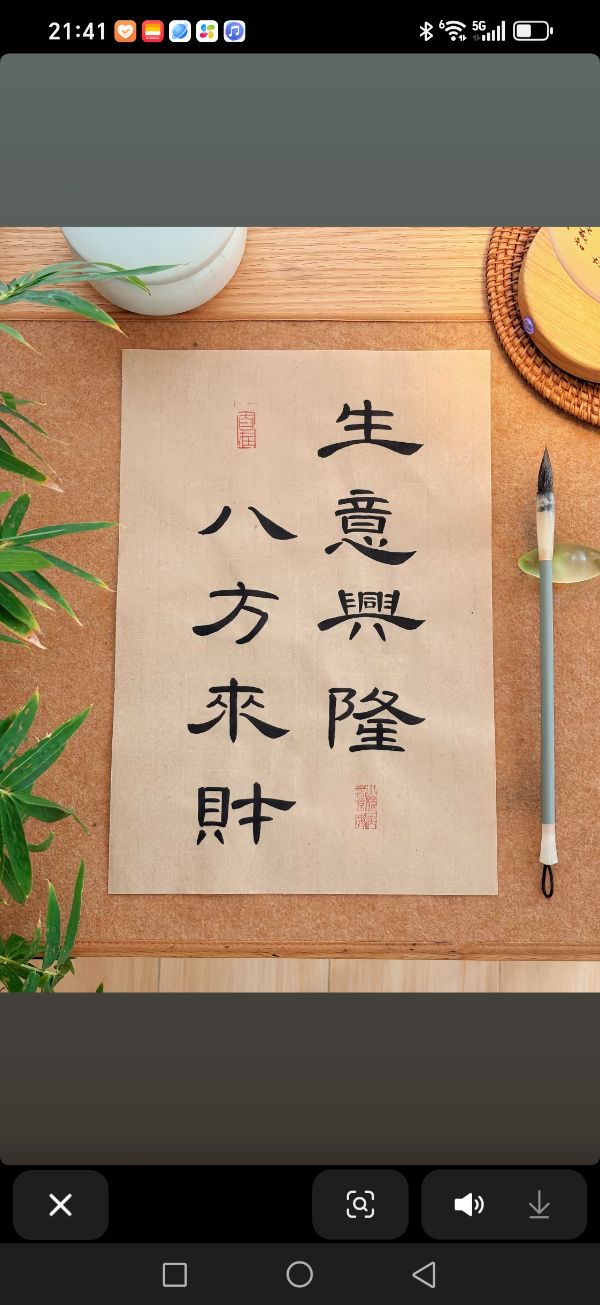 21:41
5G
生意興隆
八方來財